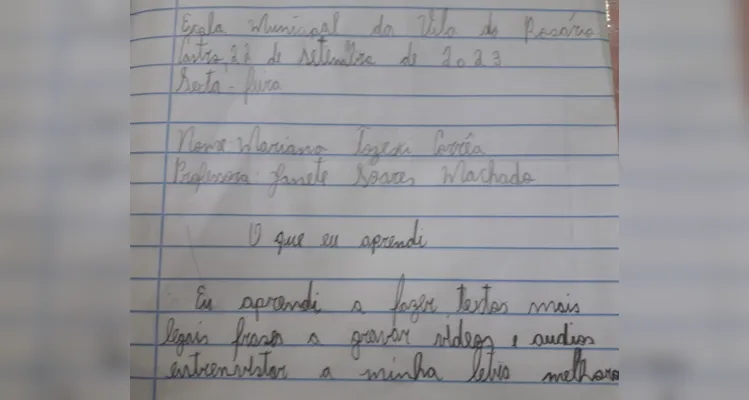 Escola Municipal da Vila do Rosário
Castro, 22 de setembro de 2023
Sexta-feira
Nome: Mariana Correa
Professora: Janete Soares Machado
O que eu aprendi
Eu aprendi a fazer textos mais
legais frases a gravar videos e audios
entrenvistar a minha letra melhoro